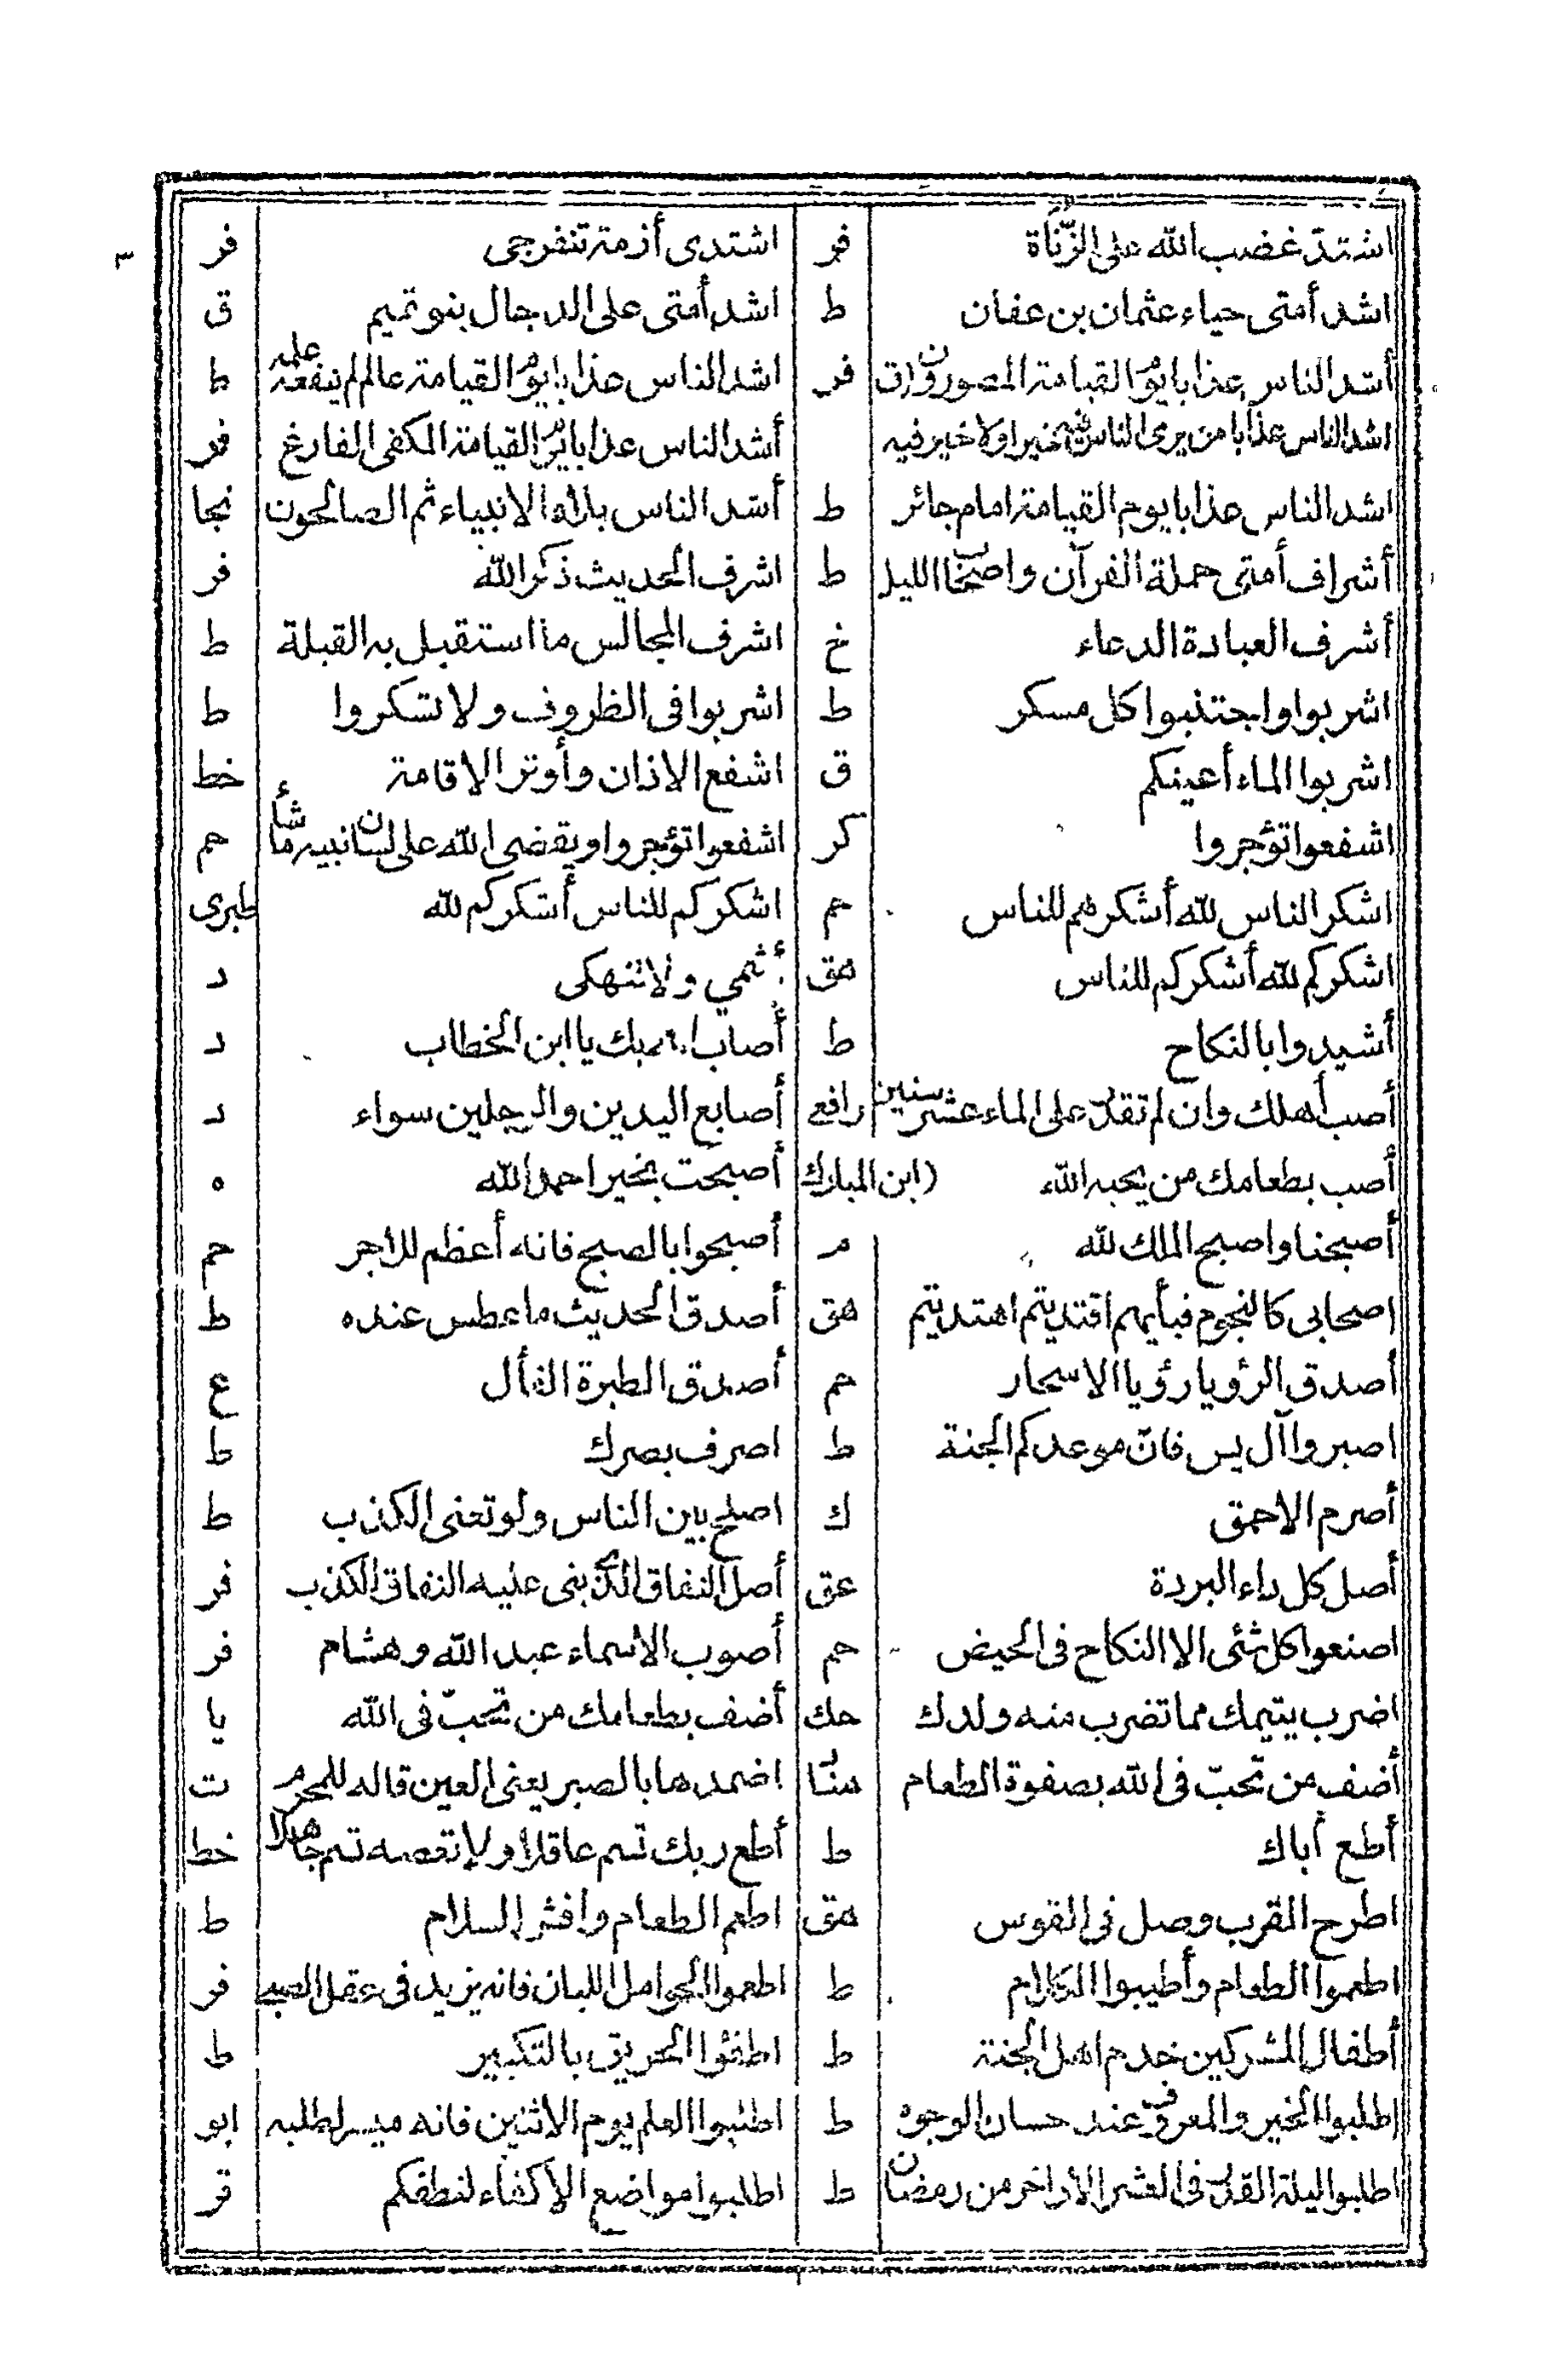 ٣
اشتدّ غضب الله على الزّناة فر اشتدى أزمة تنفرجى فر
اشد أمتى حياء عثمان بن عفان ط اشد أمتى على الدجال بنو تميم ق
أشد الناس عذابا يوم القيامة المصورون ق فر اشد الناس عذابا يوم القيامة عالم لم ينفعه علمه ط
اشد الناس عذابا من يرى الناس فيه خيرا ولا خير فيه أشد الناس عذابا يوم القيامة المكفى الفارغ فر
اشد الناس عذابا يوم القيامة امام جائر ط أشد الناس بلاء الانبياء ثم الصالحون نجا
أشراف أمتى حملة القرآن واصحاب الليل ط اشرف الحديث ذكر الله فر
أشرف العبادة الدعاء خ اشرف المجالس ما استقبل به القبلة ط
اشربوا واجتنبوا كل مسكر ط اشربوا فى الظروف ولا تسكروا ط
اشربوا الماء أعينكم ق اشفع الاذان وأوتر الاقامة خط
اشفعوا تؤجروا كر اشفعوا تؤجروا ويقضى الله على لسان نبيه ما شأ حم
اشكر الناس لله أشكرهم للناس حم اشكركم للناس أشكركم لله طبرى
اشكركم لله أشكركم للناس هق أشمي ولا تنهكى د
أشيدوا بالنكاح ط أصاب الله بك يا ابن الخطاب د
أصب أهلك وان لم تقدر على الماء عشر سنين رافع أصابع اليدين والرجلين سواء د
أصب بطعامك من يحبه الله (ابن المبارك أصبحت بخير احمد الله ه
أصبحنا واصبح الملك لله م أصبحوا بالصبح فانه أعظم للاجر حم
اصحابى كالنجوم فبأيهم اقتديتم اهتديتم هق أصدق الحديث ما عطس عنده ط
أصدق الرؤيا رؤيا الاسحار حم أصدق الطيرة الفأل ع
اصبروا آل يس فانّ موعدكم الجنة ط اصرف بصرك ط
أصرم الاحمق ك اصلح بين الناس ولو تعنى الكذب ط
أصل كل داء البردة عق أصل النفاق الذى بنى عليه النفاق الكذب فر
اصنعوا كل شئى الا النكاح فى الحيض حم أصوب الاسماء عبد الله وهشام فر
اضرب يتيمك مما تضرب منه ولدك حك أضف بطعامك من تحبّ فى الله يا
أضف من تحبّ فى الله بصفوة الطعام هناد اضمدها بالصبر يعنى العين قاله للمحرم ت
أطع أباك ط أطع ربك تسم عاقلا ولا تعصه تسم جاهلا خط
اطرح القرب وصل فى القوس هق اطعم الطعام وافش السلام ط
اطعموا الطعام وأطيبوا الكلام ط اطعموا الحوامل اللبان فانه يزيد فى عقل الصبي فر
أطفال المشركين خدم اهل الجنة ط اطفئوا الحريق بالتكبير ط
اطلبوا الخير والمعروف عند حسان الوجوه ط اطلبوا العلم يوم الاثنين فانه ميسر لطلبه ابو
اطلبوا ليلة القدر فى العشر الاواخر من رمضان ط اطلبوا مواضع الاكفاء لنطفكم قر